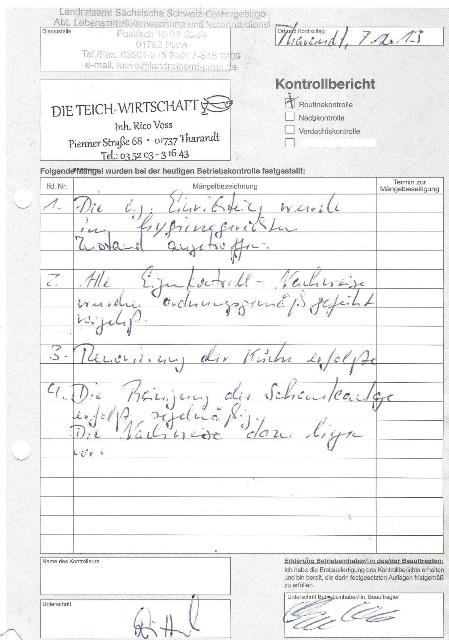 Landratsamt Sächsische Schweiz-Osterzgebirge
Abt. Lebensmittelüberwachung und Veterinärdienst
Dienststelle
Postfach 10 02
01782 Pirna
Ort und Kontrolltag
Tharandt, 7.
Kontrollbericht
Routinekontrolle
Nachkontrolle
Verdachtskontrolle
DIE TEICH-WIRTSCHAFT
Inh. Rico Voss
Pienner Straße 68 • 01737 Tharandt
Tel.: 03 52 03 - 3 16 43
Folgende Mängel wurden bei der heutigen Betriebskontrolle festgestellt:
lfd. Nr.
Mängelbezeichnung
Termin zur
Mängelbeseitigung
1. Die o.g. Einrichtung wurde
im hygienegerechten
Zustand angetroffen.
2. Alle Eigenkontroll-Nachweise
wurden ordnungsgemäß geführt
vorgelegt.
3. Renovierung der Küche erfolgte
4. Die Reinigung der Schankanlage
erfolgt regelmäßig.
Die Nachweise dazu liegen
vor.
Name des Kontrolleurs
Unterschrift
Erklärung Betriebsinhaber/-in des/der Beauftragten:
Ich habe die Erstausfertigung des Kontrollberichts erhalten
und bin bereit, die darin festgesetzten Auflagen fristgemäß
zu erfüllen.
Unterschrift Betriebsinhaber/-in, Beauftragter